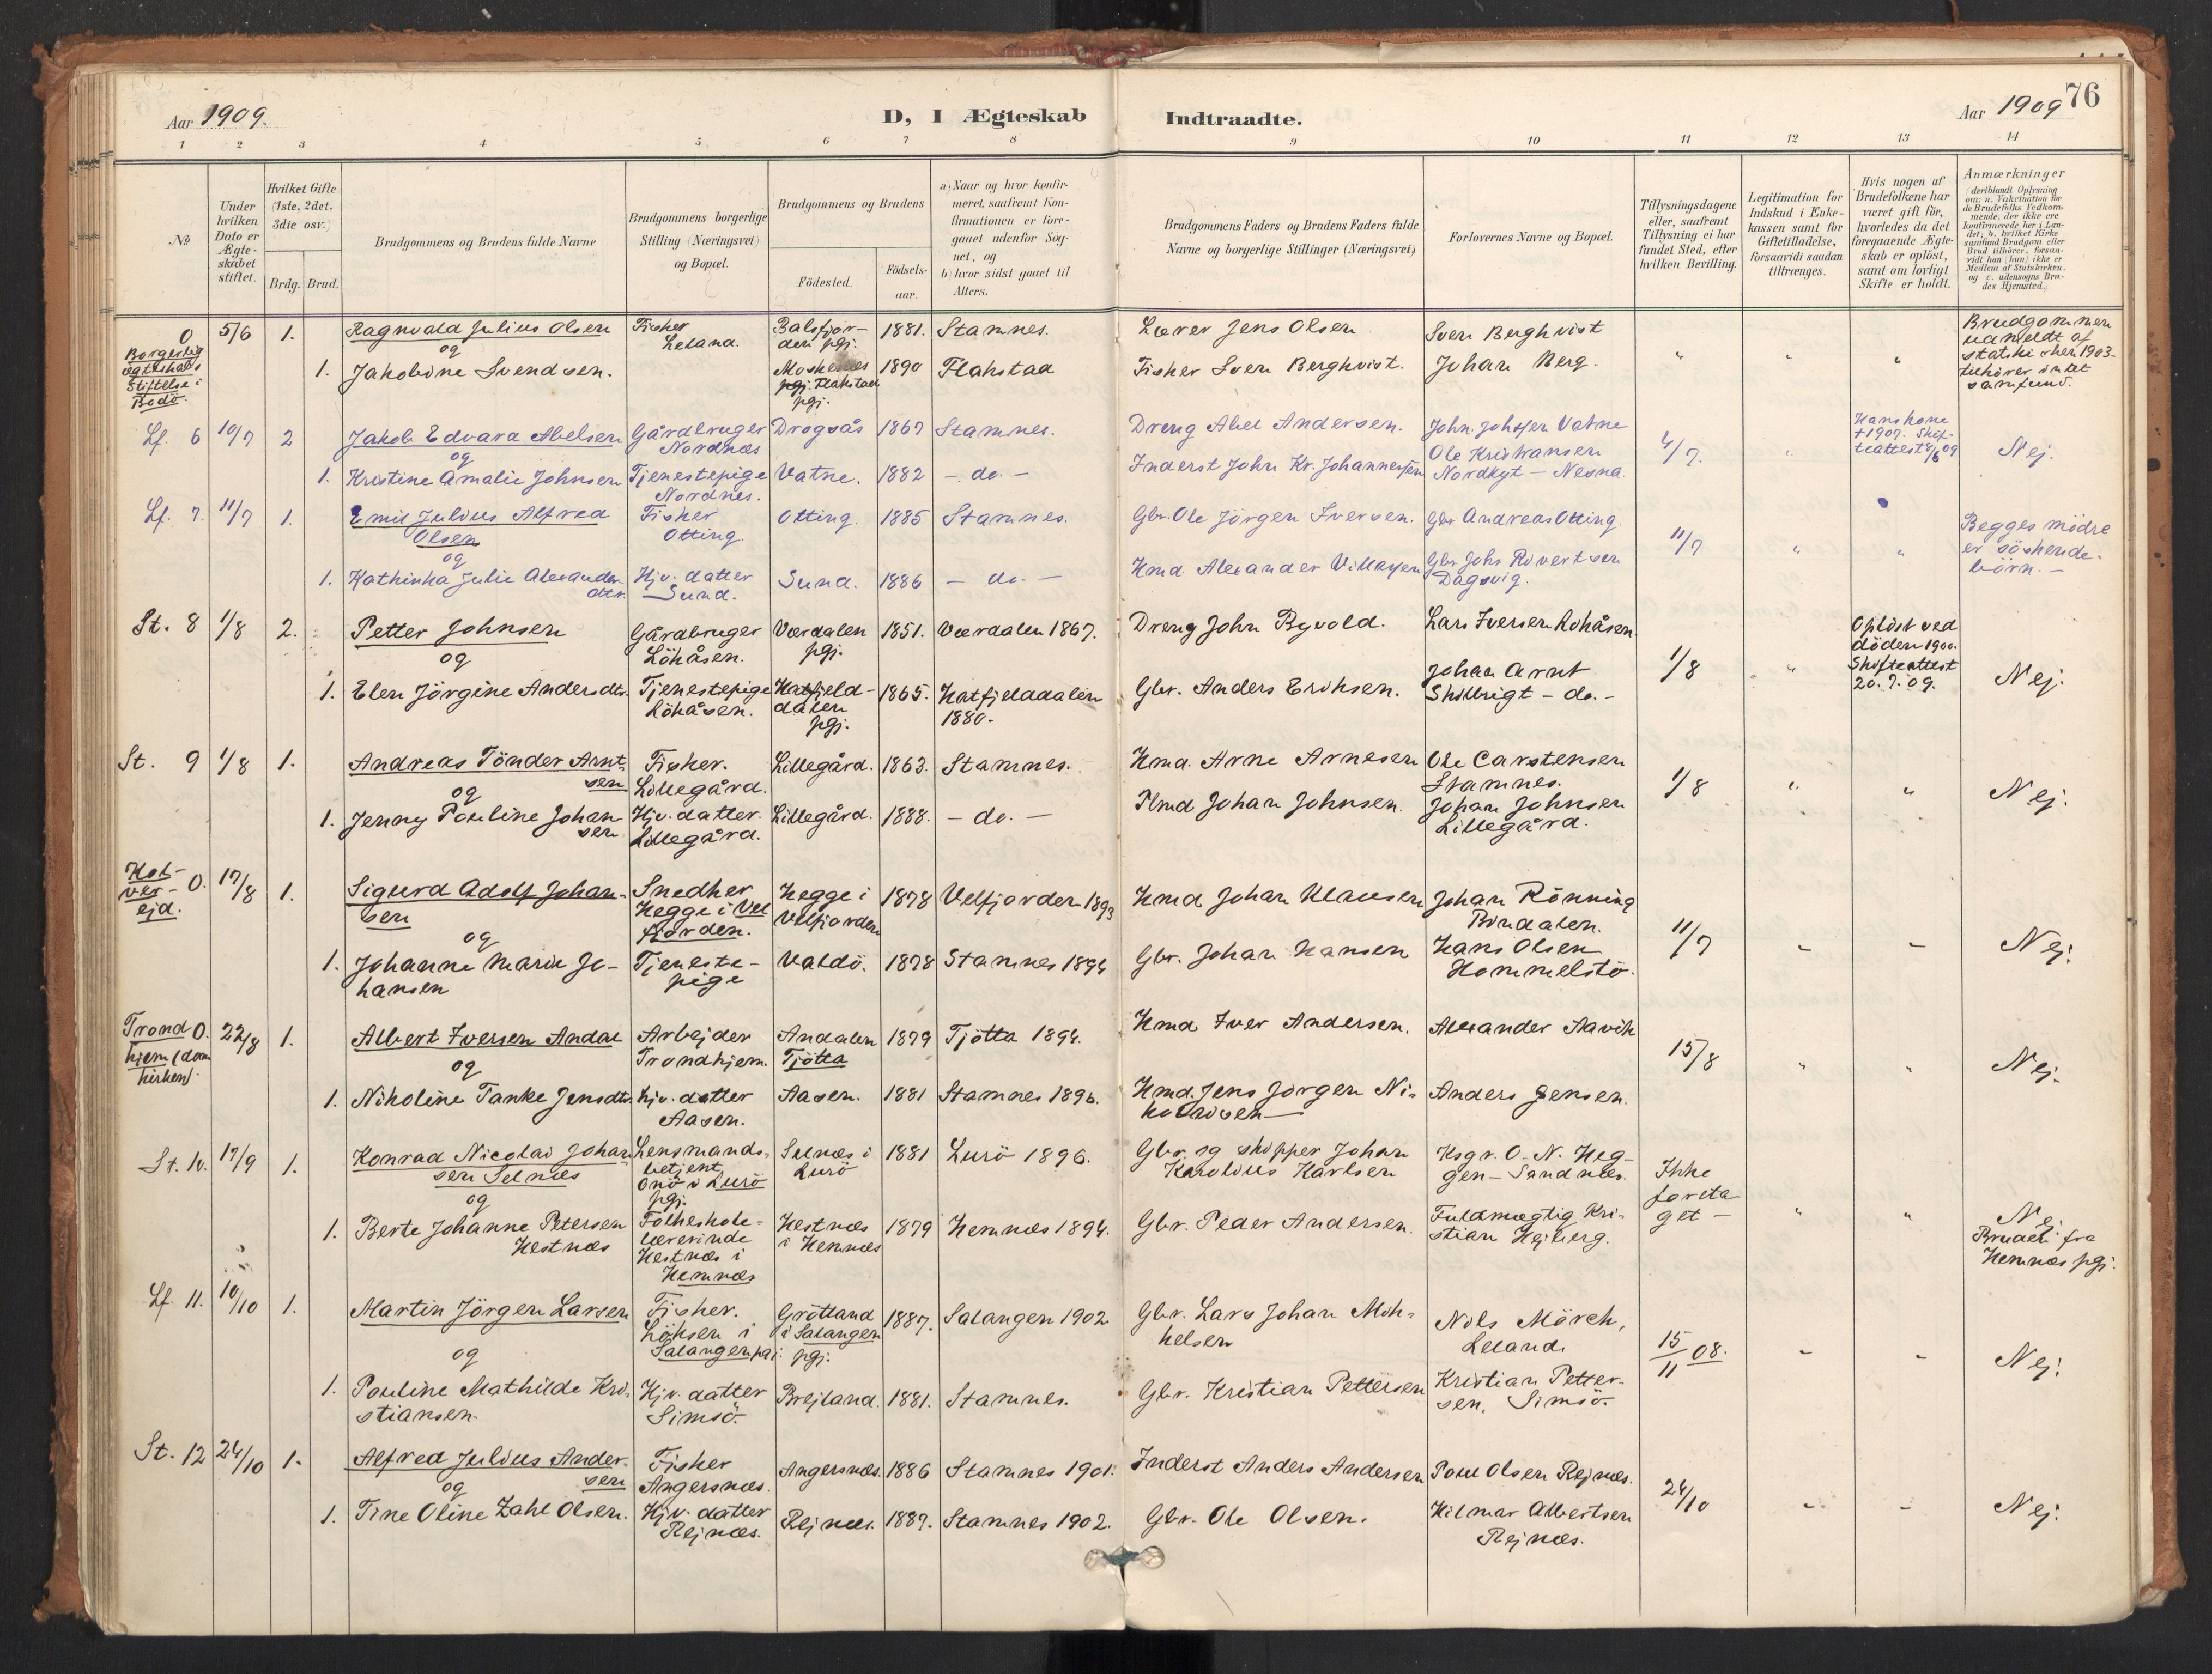 Aar 1909.
D, I Ægteskab
Indtraadte.
Aar 1909
76
1 2 3 4 5 6 7 8 9 10 11 12 13 14
No
Under hvilken Dato er Ægteskabet stiftet.
Hvilket Gifte (1ste, 2det, 3die osv.)
Brdg. Brud.
Brudgommens og Brudens fulde Navne
Brudgommens borgerlige Stilling (Næringsvei) og Bopæl.
Brudgommens og Brudens
Fødested.
Fødselsaar.
a) Naar og hvor konfirmeret, saafremt Konfirmationen er foregaaet udenfor Sognet, og
b) hvor sidst gaaet til Alters.
Brudgommens Faders og Brudens Faders fulde Navne og borgerlige Stillinger (Næringsvei)
Forlovernes Navne og Bopæl.
Tillysningsdagene eller, saafremt Tillysning ei har fundet Sted, efter hvilken Bevilling.
Legitimation for Indskud i Enkekassen samt for Giftetilladelse, forsaavidt saadan tiltrænges.
Hvis nogen af Brudefolkene har været gift før, hvorledes da det foregaaende Ægteskab er opløst, samt om lovligt Skifte er holdt.
Anmærkninger
(deriblandt Oplysning om: a. Vakcination for de Brudefolks Vedkommende, der ikke ere konfirmerede her i Landet; b. hvilket Kirkesamfund Brudgom eller Brud tilhører, forsaavidt han (hun) ikke er Medlem af Statskirken. og c. udensogns Brudes Hjemsted.)
0 5/6 1. Ragnvald Julius Olsen Fisker Leland. Balsfjorden pgj. 1881. Stamnes. Lærer Jens Olsen Sven Berghvist
Borgerlig ægteskabsstiftelse i Bodø.
og
1. Jakobine Svendsen. Moskenes pgj. Flakstad pgj. 1890 Flakstad Fisker Sven Berghvist. Johan Berg. " " "
Brudgommen udmeldt af statski ken 1903 tilhører intet samfund.
Lf. 6 10/7 2 Jakob Edvard Abelsen Gårdbruger Nordnæs Drogsås 1867 Stamnes. Dreng Abel Andersen. John Johsen Vatne
og
1. Kristine Amalie Johnsen Tjenestepige Nordnes. Vatne. 1882 - do. - Inderst John Kr. Johannessen Ole Kristiansen Nordkyt - Nesna. 4/7. " Hans kone +1907. Skifteattest 8/6 09 Nej.
Lf. 7. 11/7 1. Emil Julius Alfred Olsen Fisker Otting. Otting. 1885 Stamnes. Gbr. Ole Jörgen Iversen. Gbr Andreas Otting
og
1. Kathinka Julie Alexanderdtr. Hjv. datter Sund. Sund. 1886 - do. - Hmd Alexander Villasen Gbr Johs Rivertsen Dagsvig. 11/7 " " Begges mödre er söskendebörn. -
St. 8 1/8 2. Petter Johnsen Gårdbruger Löhåsen. Værdalen pgj. 1851. Værdalen 1867. Dreng John Byvold. Lars Iversen Lohåsen.
og
1. Elen Jörgine Andersdtr. Tjenestepige Löhåsen. Hatfjelddalen pgj. 1865. Hatfjelddalen 1880. Gbr. Anders Eriksen. Johan Arnt Skillrigt - do. - 1/8 " Oplöst ved döden 1900. Skifteattest 20.7.09. Nej.
St. 9 1/8 1. Andreas Tönder Arntsen Fisker. Lillegård. Lillegård. 1863. Stamnes. Hmd. Arne Arnesen Ole Carstensen Stamnes.
og
1. Jenny Pauline Johansen Hjv. datter. Lillegård. Lillegård. 1888. - do. - Hmd Johan Johnsen. Johan Johnsen Lillegård. 1/8 " " Nej.
Hatver-ejd. 0. 17/8 1. Sigurd Adolf Johansen Snedker Hegge i Velfjorden. Hegge i Velfjorden 1878 Velfjorden 1893 Hmd Johan Klausen Johan Rönning Bindalen.
og
1. Johanne Marie Johansen Tjenestepige Valdö. 1878 Stamnes 1894 Gbr. Johan Hansen Hans Olsen Hommelstö. 11/7 - - Nej.
Trondhjem (domkirken). 0. 22/8 1. Albert Iversen Andal Arbejder Trondhjem. Andalen Tjötta 1879 Tjötta 1894. Hmd Iver Andersen. Alexander Aavik
og
1. Nikoline Tanke Jensdtr. Hjv. datter Aasen. Aasen. 1881 Stamnes 1896. Hmd. Jens Jörgen Nikolaisen Anders Jensen. 15/8 " " Nej.
St. 10. 17/9 1. Konrad Nicolai Johansen Selnæs Lensmandsbetjent Onö i Lurö pgj. Selnæs i Lurö 1881 Lurö 1896. Gbr. og skipper Johan Karolius Karlsen Ksgr. O. N. Heggen - Sandnæs.
og
1. Berte Johanne Petersen Hestnæs Folkeskolelærerinde Hestnæs i Hemnæs Hestnæs i Hemnæs 1879 Hemnæs 1894. Gbr. Peder Andersen. Fuldmægtig Kristian Hejberg. Ikke foretaget - " " Nej. Bruden fra Hemnæs pgj.
Lf 11. 10/10 1. Martin Jörgen Larsen Fisker. Löksen i Salangen pgj. Grötland i Salangen pgj. 1887. Salangen 1902 Gbr. Lars Johan Mikkelsen Nils Mörch, Leland.
og
1. Pauline Mathilde Kristiansen. Hjv. datter Simsö. Brejland. 1881. Stamnes. Gbr. Kristian Pettersen Kristian Pettersen, Simsö. 15/11 08. - - Nej.
St. 12 24/10 1. Alfred Julius Andersen Fisker Angersnæs. Angersnæs. 1886 Stamnes 1901. Inderst Anders Andersen Poul Olsen Rejnæs.
og
1. Tine Oline Zahl Olsen. Hjv. datter Rejnæs. Rejnæs. 1887. Stamnes 1902. Gbr. Ole Olsen. Hilmar Albertsen Rejnæs. 24/10 - - Nej.